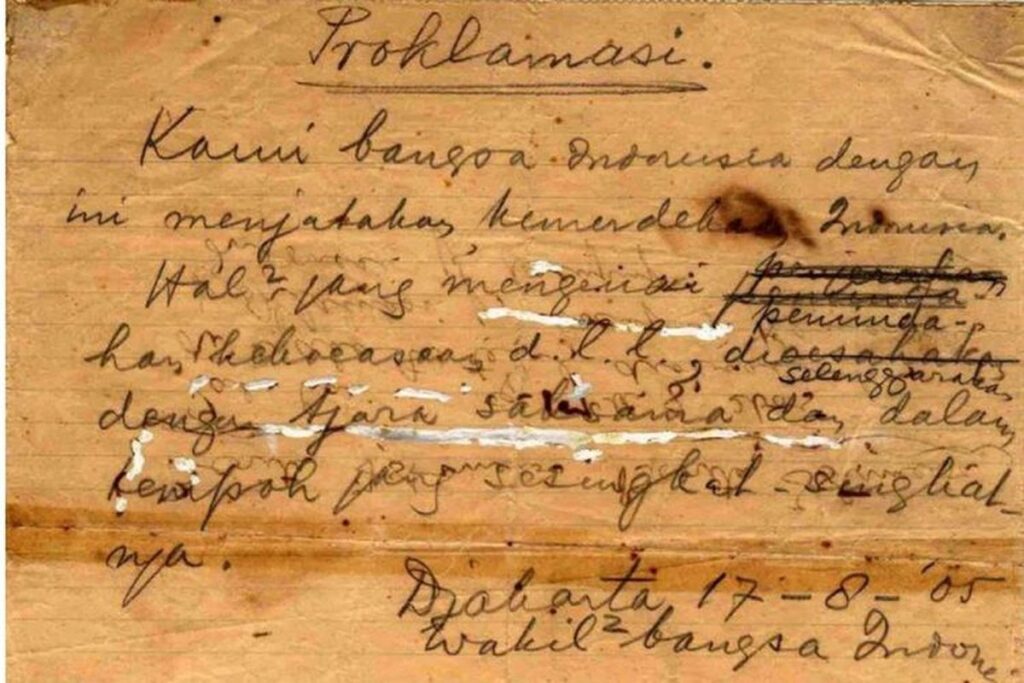 Proklamasi.
Kami bangsa Indonesia dengan
ini menjatakan kemerdekaan Indonesia.
Hal² jang mengenai
peminda-
han kekoeasaan, d.l.l., dioesahakan
selenggarakan
dengan tjara saksama dan dalam
tempoh jang sesingkat-singkat-
nja.
Djakarta 17 - 8 - '05
Wakil² bangsa Indone